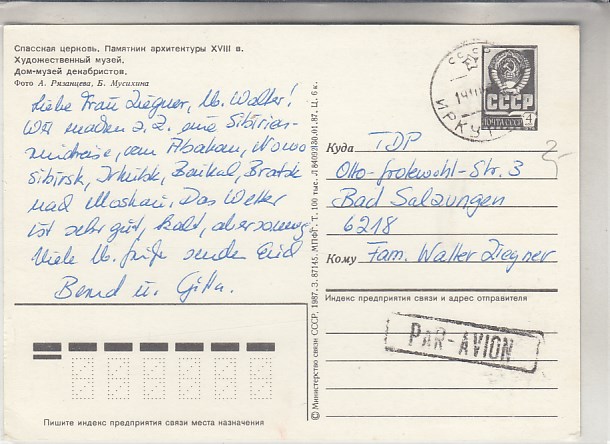 Спасская церковь. Памятник архитектуры XVIII в.
Художественный музей.
Дом-музей декабристов.
Фото А. Рязанцева, Б. Мусихина
Liebe Frau Ziegner, lb. Walter!
Wir machen z.Z. eine Sibirien-
rundreise, von Abakan, Nowo
sibirsk, Irkutsk, Baikal, Bratsk
nach Moskau. Das Wetter
ist sehr gut, kalt, aber sonnig
Viele lb. Grüße senden Euch
Bernd u. Gitta.
СССР
ИРКУТ
СССР
ПОЧТА СССР
4
Куда TDP
Otto-Grotewohl-Str. 3
Bad Salzungen
6218
Кому Fam. Walter Ziegner
Индекс предприятия связи и адрес отправителя
PAR-AVION
© Министерство связи СССР, 1987. З. 87145. МПФГ. Т. 100 тыс. Л 330.01.87. Ц. 6 к.
Пишите индекс предприятия связи места назначения